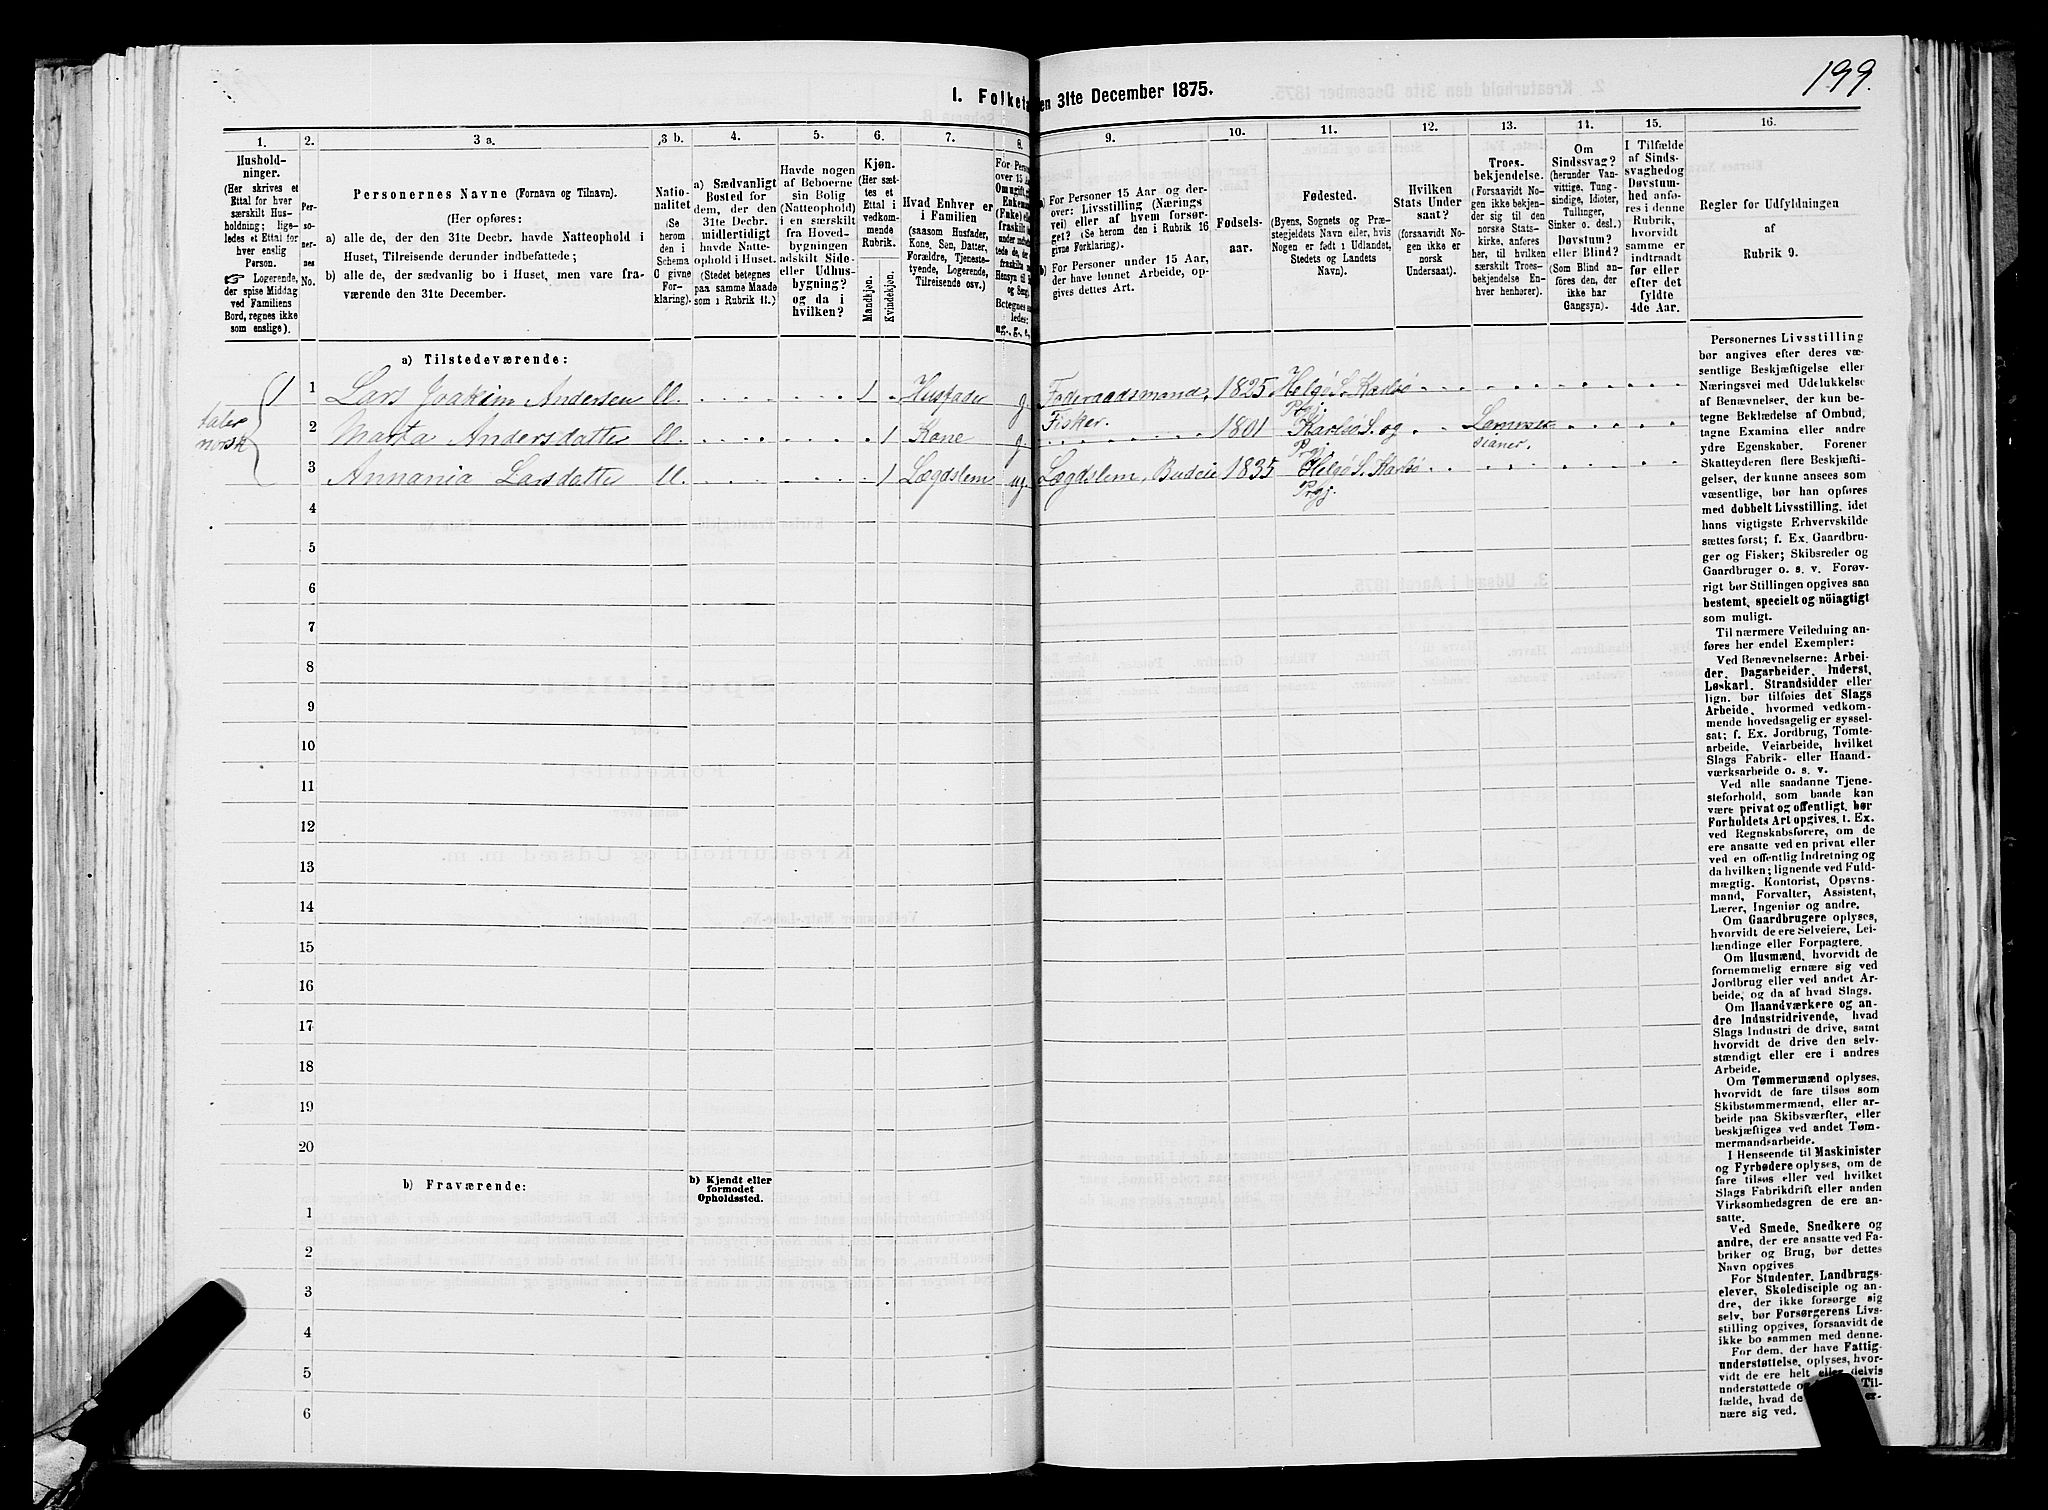 199.
I. Folketa
en 31te December 1875.
1.
2.
3 a.
3 b.
4.
5.
6.
7.
8.
9.
10.
11.
12.
13.
14.
15.
16.
Hushold-
ninger.
(Her skrives et
Ettal for hver
særskilt Hus-
holdning; lige-
ledes et Ettal for
hver enslig
Person.
☞ Logerende,
der spise Middag
ved Familiens
Bord, regnes ikke
som enslige).
Per-
so-
ner-
nes
No.
Personernes Navne (Fornavn og Tilnavn).
(Her opføres:
a) alle de, der den 31te Decbr. havde Natteophold i
Huset, Tilreisende derunder indbefattede;
b) alle de, der sædvanlig bo i Huset, men vare fra-
værende den 31te December.
Natio-
nalitet
(Se
herom
den i
Schema
C givne
For-
klaring).
a) Sædvanligt
Bosted for
dem, der den
31te Decbr.
midlertidigt
havde Natte-
ophold i Huset.
(Stedet betegnes
paa samme Maade
som i Rubrik 11.)
Havde nogen
af Beboerne
sin Bolig
(Natteophold)
i en særskilt
fra Hoved-
bygningen
adskilt Side-
eller Udhus-
bygning?
og da i
hvilken?
Kjøn.
(Her sæt-
tes et
Ettal i
vedkom-
mende
Rubrik.
Mandkjøn.
Kvindekjøn.
Hvad Enhver er
i Familien
(saasom Husfader,
Kone, Søn, Datter,
Forældre, Tjeneste-
tyende, Logerende,
Tilreisende osv.)
For Person
over 15 Aa
Om ugift, gi
Enkeman
(Enke) elle
fraskilt
under indbe
Hensyn til
og Seng.
Betegnes saa-
ledes:
ug., g., e.,
a) For Personer 15 Aar og der-
over: Livsstilling (Nærings
vei) eller af hvem forsør-
get? (Se herom i Rubrik 16
givne Forklaring).
b) For Personer under 15 Aar,
der have lønnet Arbeide, op-
gives dettes Art.
Fødsels-
aar.
Fødested.
(Byens, Sognets og Præ-
stegjeldets Navn eller, hvis
Nogen er født i Udlandet,
Stedets og Landets
Navn).
Hvilken
Stats Under
saat?
(forsaavidt No-
gen ikke er
norsk
Undersaat).
Troes-
bekjendelse.
(Forsaavidt No-
gen ikke bekjen-
der sig til den
norske Stats-
kirke, anføres
her, til hvilken
særskilt Troes-
bekjendelse En-
hver henhører).
Om
Sindssvag?
(herunder Van-
vittige, Tung-
sindige, Idioter,
Tullinger,
Sinker o. desl.)
Døvstum?
eller Blind?
(Som Blind an-
føres den, der
ikke har
Gangsyn).
I Tilfælde
af Sinds-
svaghed og
Døvstum-
hed anfø-
res i denne
Rubrik,
hvorvidt
samme er
indtraadt
før eller
efter det
fyldte
4de Aar.
Regler for Udfyldningen
af
Rubrik 9.
a) Tilstedeværende:
1 1 Lars Joakim Andersen ll. 1 Husfader g. Føderaadsmand, Fisker. 1825 Helgø S. Karlsø Prgj.
taler norsk
2 Marta Andersdatter ll. 1 Kone g. 1801 Karlsø S. og Prgj.
3 Annania Larsdatter ll. 1 Lægdslem ug. Lægdslem, Budeie 1835 Helgø S. Karlsø Prgj.
4
5
6
7
8
9
10
11
12
13
14
15
16
17
18
19
20
b) Fraværende:
b) Kjendt eller
formodet
Opholdssted.
1
2
3
4
5
6
Personernes Livsstilling
bør angives efter deres væ-
sentlige Beskjæftigelse eller
Næringsvei med Udelukkelse
af Benævnelser, der kun be-
tegne Beklædelse af Ombud,
tagne Examina eller andre
ydre Egenskaber. Forener
Skatteyderen flere Beskjæfti-
gelser, der kunne ansees som
væsentlige, bør han opføres
med dobbelt Livsstilling, idet
hans vigtigste Erhvervskilde
sættes først; f. Ex. Gaardbru-
ger og Fisker; Skibsreder og
Gaardbruger o. s. v. Forøv-
rigt bør Stillingen opgives saa
bestemt, specielt og nöiagtigt
som muligt.
Til nærmere Veiledning an-
føres her endel Exempler:
Ved Benævnelserne: Arbei-
der, Dagarbeider, Inderst,
Løskarl, Strandsidder eller
lign. bør tilføies det Slags
Arbeide, hvormed vedkom-
mende hovedsagelig er syssel-
sat; f. Ex. Jordbrug, Tomte-
arbeide, Veiarbeide, hvilket
Slags Fabrik- eller Haand-
værksarbeide o. s. v.
Ved alle saadanne Tjene-
steforhold, som baade kan
være privat og offentligt, bør
Forholdets Art opgives, f. Ex.
ved Regnskabsførere, om de
ere ansatte ved en privat eller
ved en offentlig Indretning og
da hvilken; lignende ved Fuld-
mægtig, Kontorist, Opsyns-
mand, Forvalter, Assistent,
Lærer, Ingeniør og andre.
Om Gaardbrugere oplyses,
hvorvidt de ere Selveiere, Lei-
lændinge eller Forpagtere.
Om Husmænd, hvorvidt de
fornemmelig ernære sig ved
Jordbrug eller ved andet Ar-
beide, og da af hvad Slags.
Om Haandværkere og an-
dre Industridrivende, hvad
Slags Industri de drive, samt
hvorvidt de drive den selv-
stændigt eller ere i andres
Arbeide.
Om Tømmermænd oplyses,
hvorvidt de fare tilsøs som
Skibstømmermænd, eller ar-
beide paa Skibsværfter, eller
beskjæftiges ved andet Tøm-
mermandsarbeide.
I Henseende til Maskinister
og Fyrbødere oplyses, om de
fare tilsøs eller ved hvilket
Slags Fabrikdrift eller anden
Virksomhedsgren de ere an-
satte.
Ved Smede, Snedkere og
andre, der ere ansatte ved Fa-
briker og Brug, bør dettes
Navn opgives
For Studenter, Landbrugs-
elever, Skoledisciple og an-
dre, der ikke forsørge sig
selv, bør Forsørgerens Livs-
stilling opgives, forsaavidt de
ikke bo sammen med denne.
For dem, der have Fattig-
understøttelse, oplyses, hvor-
vidt de ere helt eller delvis
understøttede o Til-
fælde, hvad de er-
nære sig ved.